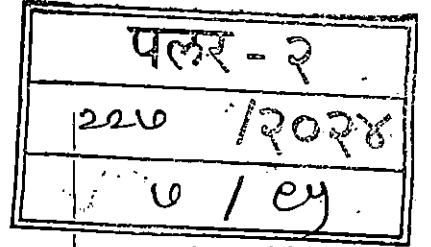 पलर - २
२२७ /२०२४
७ / ९५